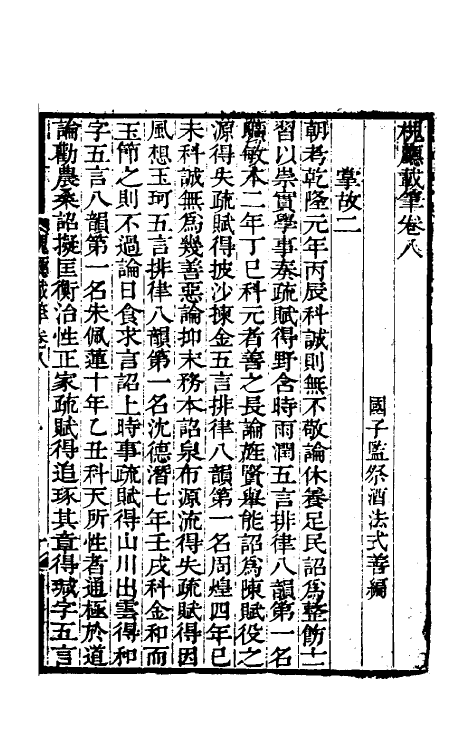 槐廳載筆卷八
國子監祭酒法式善編
掌故二
朝考乾隆元年丙辰科誠則無不敬論休養足民詔爲整飭士
習以崇實學事奏疏賦得野含時雨潤五言排律八韻第一名
曠敏本二年丁巳科元者善之長論旌賢舉能詔爲陳賦役之
源得失疏賦得披沙揀金五言排律八韻第一名周煌四年己
未科誠無爲幾善惡論抑末務本詔泉布源流得失疏賦得因
風想玉珂五言排律八韻第一名沈德潛七年壬戌科金和而
玉節之則不過論日食求言詔上時事疏賦得山川出雲得和
字五言八韻第一名朱佩蓮十年乙丑科天所性者通極於道
論勸農桑詔擬匡衡治性正家疏賦得追琢其章得瑊字五言